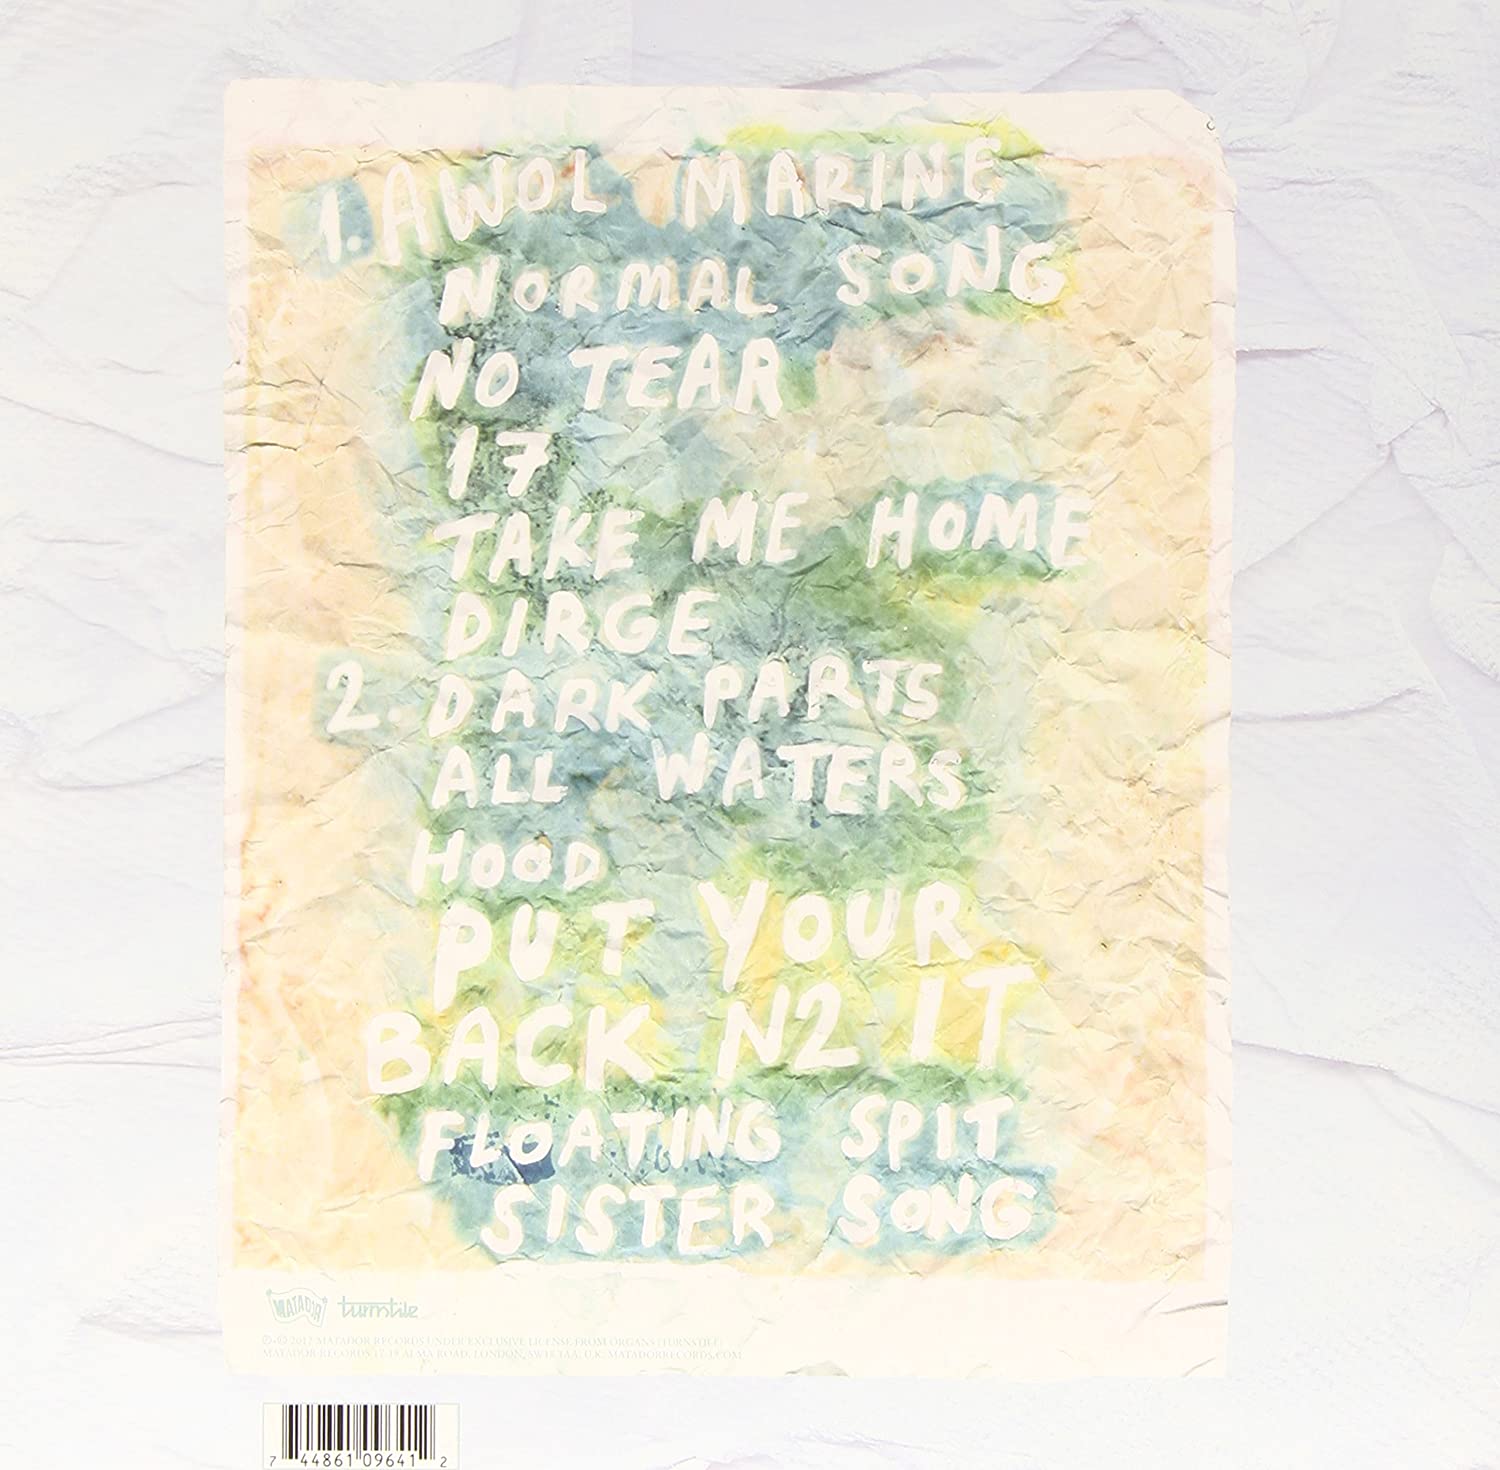 1. AWOL MARINE
NORMAL SONG
NO TEAR
17
TAKE ME HOME
DIRGE
2. DARK PARTS
ALL WATERS
HOOD
PUT YOUR
BACK N2 IT
FLOATING SPIT
SISTER SONG
MATADOR turnstile
℗ © 2012 MATADOR RECORDS UNDER EXCLUSIVE LICENSE FROM ORGANS/TURNSTILE.
MATADOR RECORDS 17-19 ALMA ROAD, LONDON, SW18 1AA, U.K. MATADORRECORDS.COM
7 44861 09641 2